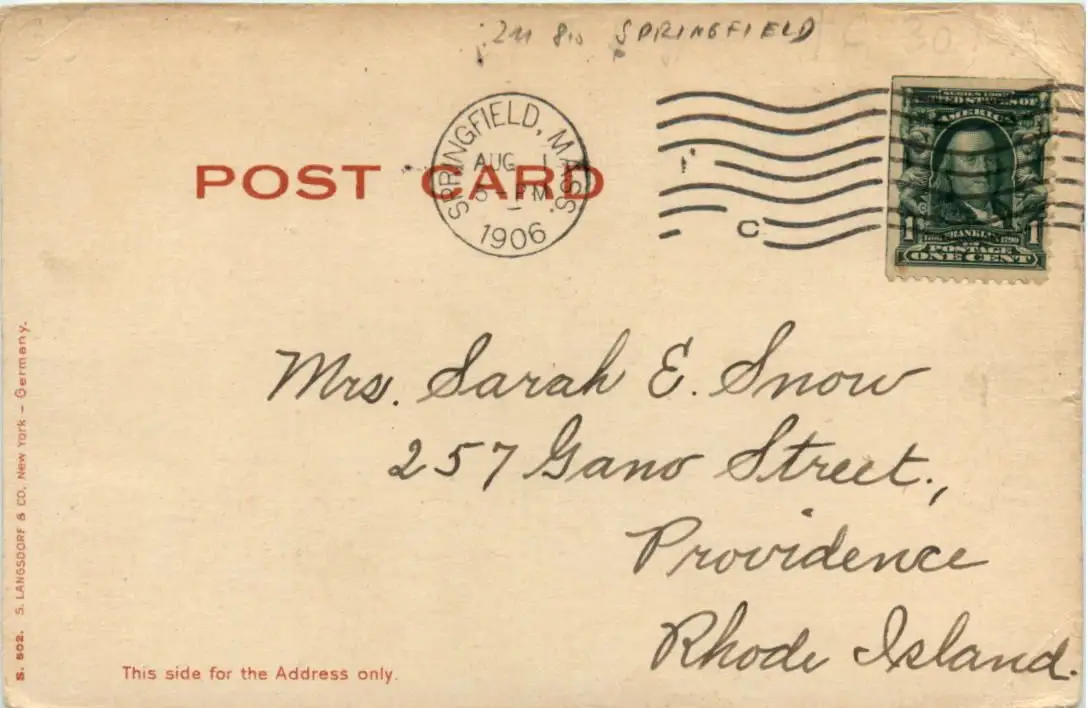 SPRINGFIELD
SPRINGFIELD, MASS.
AUG 1
PM
1906
C
POST CARD
UNITED STATES OF
AMERICA
1 FRANKLIN 1
POSTAGE
ONE CENT
Mrs. Sarah E. Snow
257 Gano Street.,
Providence
Rhode Island.
S. 502. S. LANGSDORF & CO, New York – Germany.
This side for the Address only.